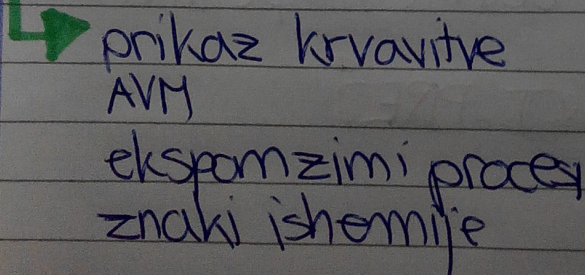 prikaz krvavitve
AVM
ekspanzimi procesi
znaki ishemije